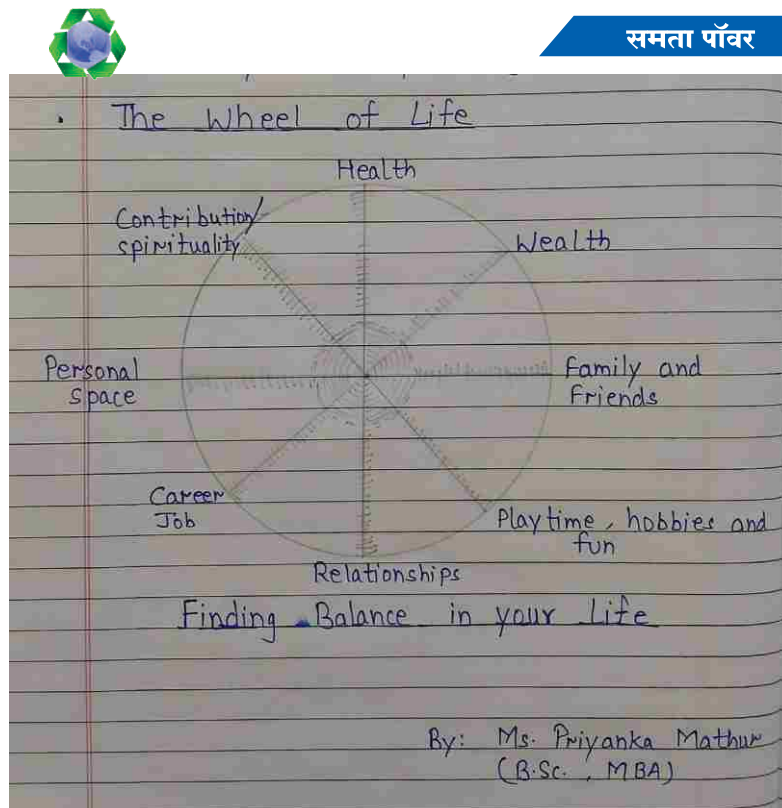 समता पॉवर
The Wheel of Life
Health
Contribution/
spirituality
Wealth
Personal
space
Family and
Friends
Career
Job
Playtime, hobbies and
fun
Relationships
Finding Balance in your Life
By: Ms. Priyanka Mathur
(B.Sc., MBA)